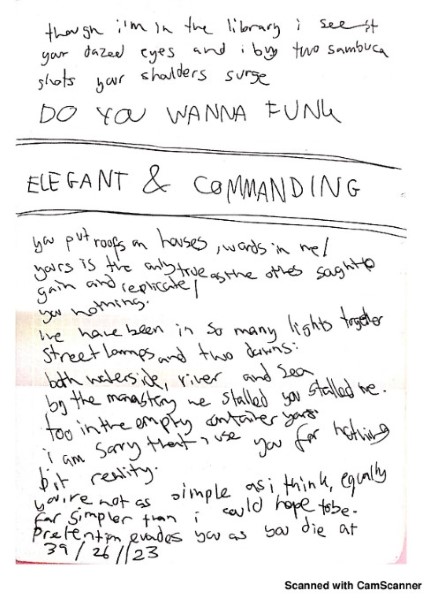 though i'm in the library i see
your dazed eyes and i buy two sambuca
shots your shoulders surge
DO YOU WANNA FUNK
ELEGANT & COMMANDING
you put roofs on houses, words in me/
yours is the only true as the others sought to
gain and replicate/
you nothing.
we have been in so many lights together
street lamps and two dawns:
both waterside, river and sea
by the monastery we stalled you stalled me.
too in the empty container yard.
i am sorry that i use you for nothing
bit reality.
you're not as simple as i think, equally
far simpler than i could hope to be.
Pretention evades you as you die at
39/26//23
Scanned with CamScanner